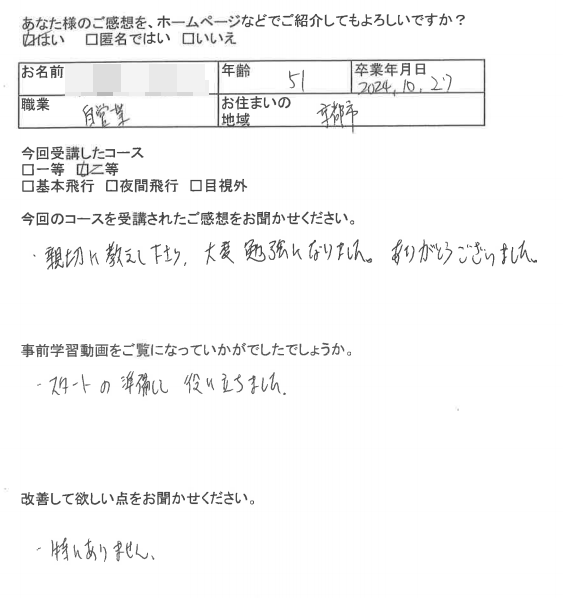 あなた様のご感想を、ホームページなどでご紹介してもよろしいですか？
☑はい □匿名ではい □いいえ
お名前 年齢 51 卒業年月日 2024.10.27
職業 自営業 お住まいの地域 京都市
今回受講したコース
□一等 ☑二等
□基本飛行 □夜間飛行 □目視外
今回のコースを受講されたご感想をお聞かせください。
・親切に教えて下さり、大変勉強になりました。ありがとうございました。
事前学習動画をご覧になっていかがでしたでしょうか。
・スタートの準備として役に立ちました。
改善して欲しい点をお聞かせください。
・特にありません。